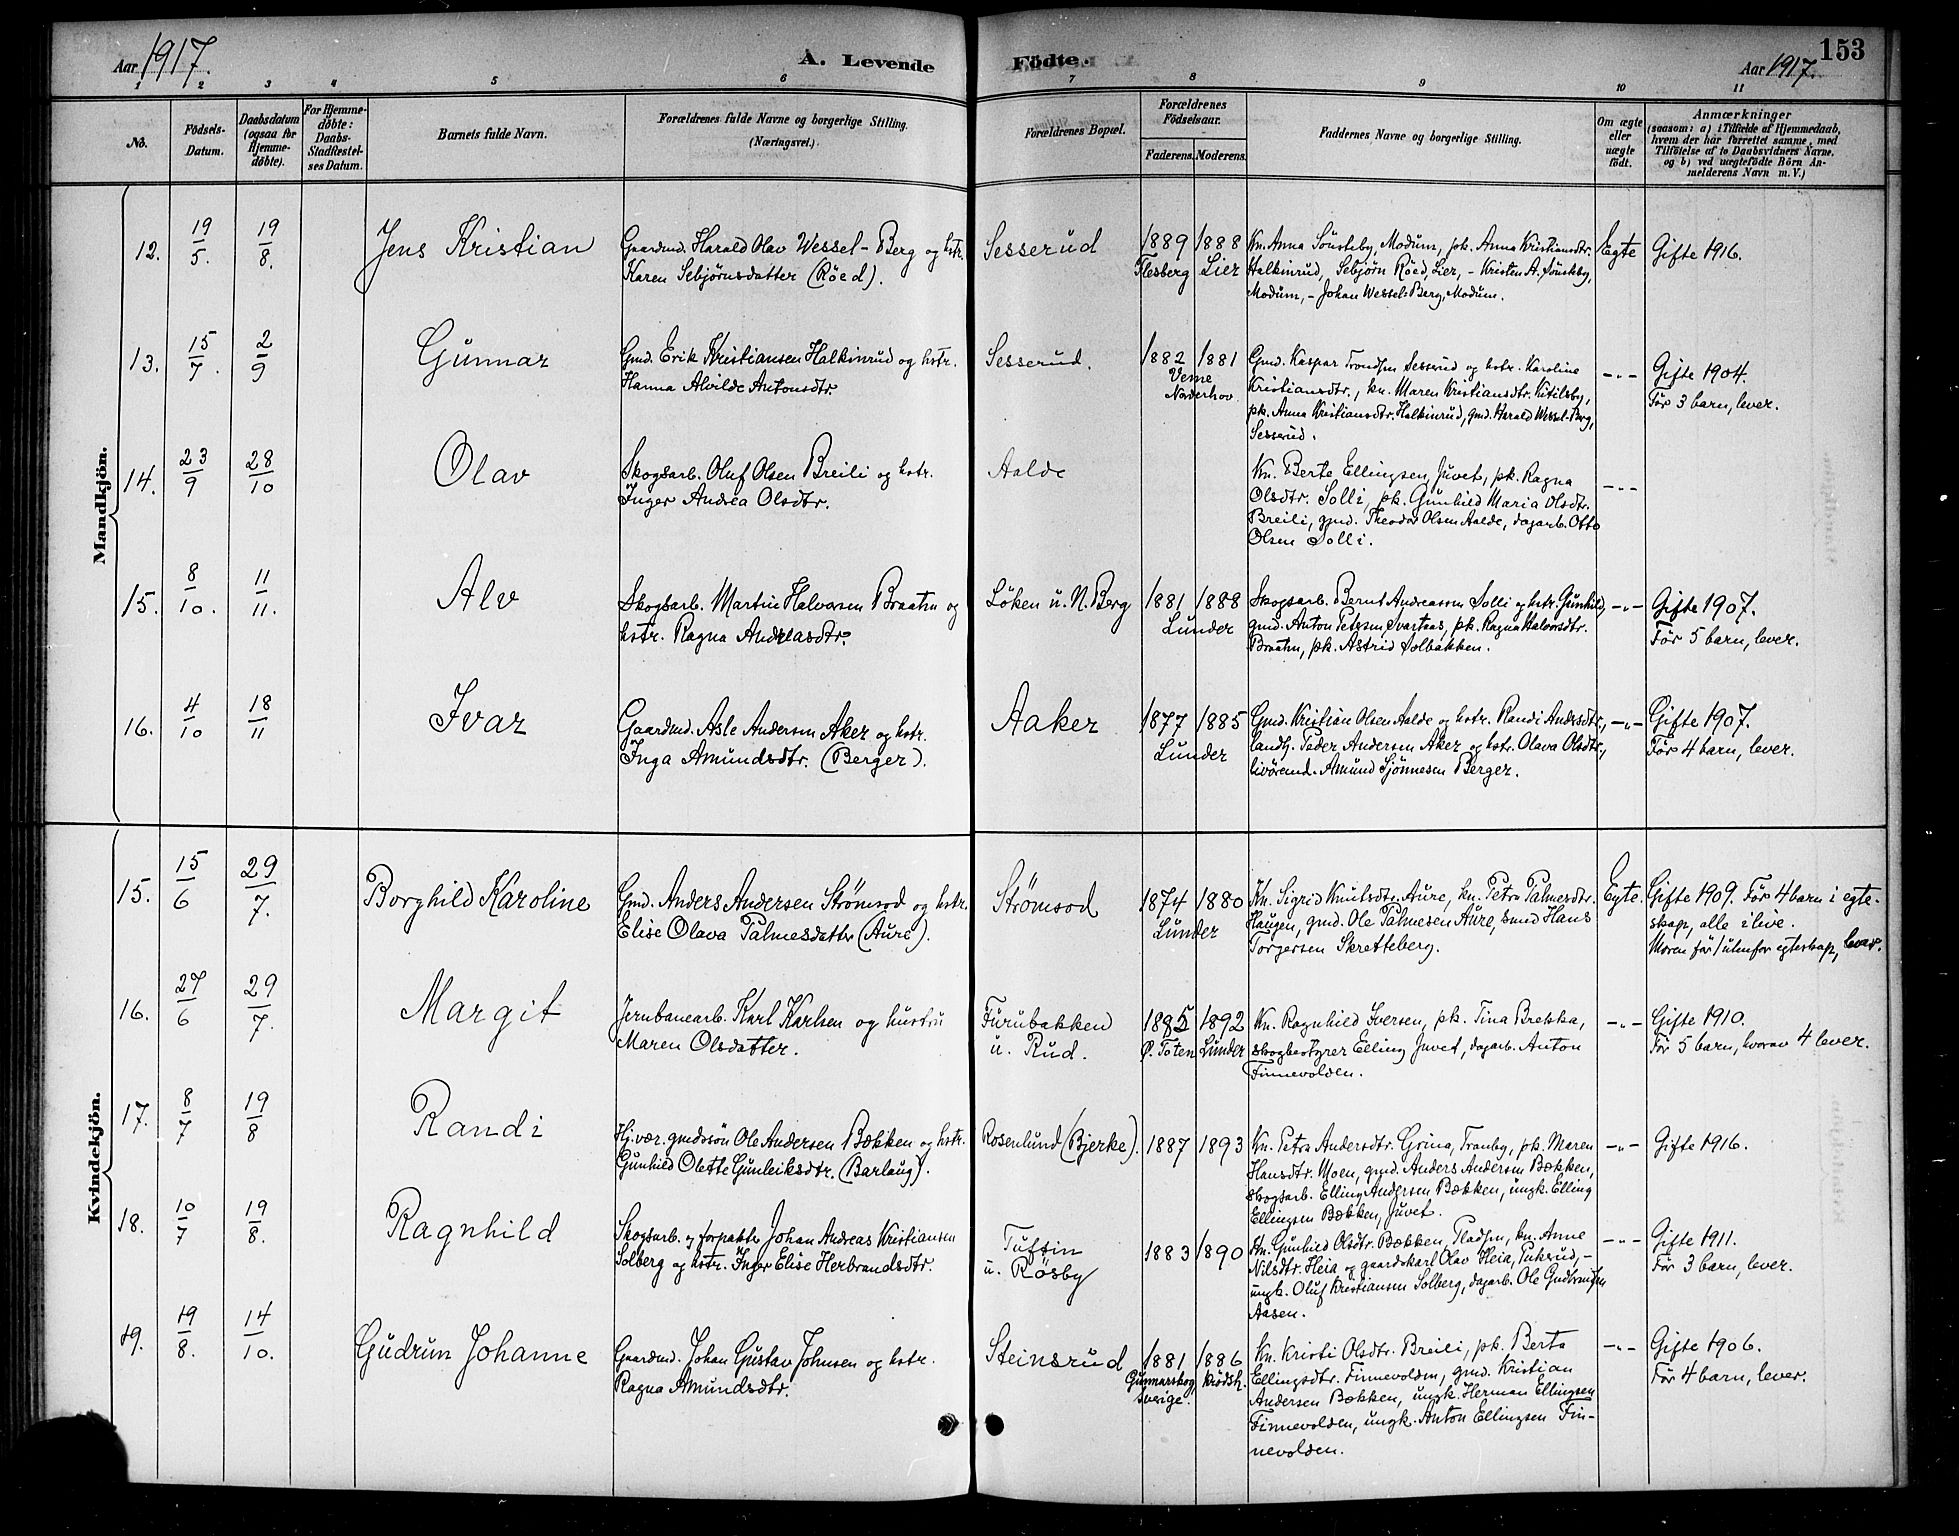 Aar 1917.
A. Levende Födte.
Aar 1917.
153
1 2 3 4 5 6 7 8 9 10 11
No.
Födsels-Datum.
Daabsdatum (ogsaa for Hjemme-döbte).
For Hjemme-döbte: Daabs-Stadfæstel-ses Datum.
Barnets fulde Navn.
Forældrenes fulde Navne og borgerlige Stilling. (Næringsvei.)
Forældrenes Bopæl.
Forældrenes Födselsaar.
Faderens. Moderens.
Faddernes Navne og borgerlige Stilling.
Om ægte eller uægte födt.
Anmærkninger
(saasom: a) i Tilfælde af Hjemmedaab,
hvem der har forrettet samme, med
Tilföielse af to Daabsvidners Navne,
og b) ved uægtefödte Börn An-
melderens Navn m. V.)
Mandkjön.
12. 19/5. 19/8. Jens Kristian
Gaardmd. Harald Olav Wessel-Berg og hstr.
Karen Sebjørnsdatter (Röed).
Sesserud
1889 Flesberg
1888 Lier
Kn. Anna Sönsteby, Modum, pk. Anna Kristiansdtr.
Halkinrud, Sebjørn Röed, Lier, - Kristen A. Sönsteby,
Modum, - Johan Wessel-Berg, Modum.
Egte
Gifte 1916.
13. 15/7. 2/9 Gunnar
Gmd. Erik Kristiansen Halkinrud og hstr.
Hanna Alvilde Antonsdtr.
Sesserud.
1882 1881
Veme
Norderhov
Gmd. Kaspar Trondsen Sesserud og hstr. Karoline
Kristiansdtr., kn. Maren Kristiansdtr. Kitilsby,
pk. Anna Kristiansdtr. Halkinrud, gmd. Harald Wessel-Berg,
Sesserud.
-"-
Gifte 1904.
Før 3 barn, lever.
14. 23/9 28/10 Olav
Skogsarb. Oluf Olsen Breili og hstr.
Inger Andrea Olsdtr.
Aalde
Kn. Berte Ellingsen, Juvet, pk. Ragna
Olsdtr. Solli, pk. Gunhild Maria Olsdtr.
Breili, gmd. Theodor Olsen Aalde, dagarb. Otto
Olsen Solli.
-"-
15. 8/10. 11/11. Alv
Skogsarb. Martin Halvorsen Braatn og
hstr. Ragna Andreasdtr.
Löken u. N. Berg
1881 1888
Lunder
Skogsarb. Bernt Andreassen Solli og hstr. Gunhild,
gmd. Anton Petersen Svartaas, pk. Ragna Halvorsdtr.
Braatn, pk. Astrid Solbakken.
-"-
Gifte 1907.
Før 5 barn, lever.
16. 4/10 18/11 Ivar
Gaardmd. Asle Andersen Aker og hstr.
Inga Amundsdtr. (Berger).
Aaker
1877 1885
Lunder
Gmd. Kristian Olsen Aalde og hstr. Randi Andrsdtr.,
landh. Peder Andersen Aker og hstr. Olava Olsdtr.,
livöremd. Amund Sjönnesen Berger.
-"-
Gifte 1907.
Før 4 barn, lever.
Kvindekjön.
15. 15/6 29/7. Borghild Karoline
Gmd. Anders Andersen Strömsod og hstr.
Elise Olava Palmesdatter (Aure).
Strömsod
1874 1880
Lunder
Kn. Sigrid Knutsdtr. Aure, kn. Petra Palmesdtr.
Haugen, gmd. Ole Palmesen Aure, smed Hans
Torgersen Skretteberg.
Egte.
Gifte 1909. Før 4 barn i egte-
skap, alle i live.
Moren før 1 utenfor egteskap, lever.
16. 27/6 29/7. Margit
Jernbanearb. Karl Karlsen og hustru
Maren Olsdatter.
Furubakken
u. Rud.
1885 Ø. Toten
1892 Lunder
Kn. Ragnhild Iversen, pk. Tina Brekka,
skogbestyrer Elling Juvet, dagarb. Anton
Finnevolden.
-"-
Gifte 1910.
Før 5 barn, hvorav 4 lever.
17. 8/7 19/8 Randi
Hj.vær. gmdssön Ole Andersen Bækken og hstr.
Gunhild Olette Gunleiksdtr. (Barlaug).
Rosenlund (Bjerke).
1887 1893
Kn. Petra Andersdtr. Grina, Tranby, pk. Maren
Hansdtr. Moen, gmd. Anders Andersen Bækken,
skogsarb. Elling Andersen Bækken, ungk. Elling
Ellingsen Bækken, Juvet.
-"-
Gifte 1916.
18. 10/7 19/8. Ragnhild
Skogsarb. og forpakter Johan Andreas Kristiansen
Solberg og hstr. Inger Elise Herbrandsdtr.
Tuftin
u. Rösby
1883 1890
Kn. Gunhild Olsdtr. Bækken, kn. Anne
Nilsdtr. Heia og gaardskarl Olav Heia, Puksrud, -
ungk. Oluf Kristiansen Solberg, dagarb. Ole Gudbrandsen
Aasen.
-"-
Gifte 1911.
Før 3 barn, lever.
19. 19/8. 14/10. Gudrun Johanne
Gaardmd. Johan Gustav Johnsen og hstr.
Ragna Amundsdtr.
Steinsrud
1881 Gunnarskog, Sverige.
1886 Krödsh.
Kn. Kristi Olsdtr. Breili, pk. Berta
Ellingsdtr. Finnevolden, gmd. Kristian
Andersen Bækken, ungk. Herman Ellingsen
Finnevolden, ungk. Anton Ellingsen Fin-
nevolden.
-"-
Gifte 1906.
Før 4 barn, lever.